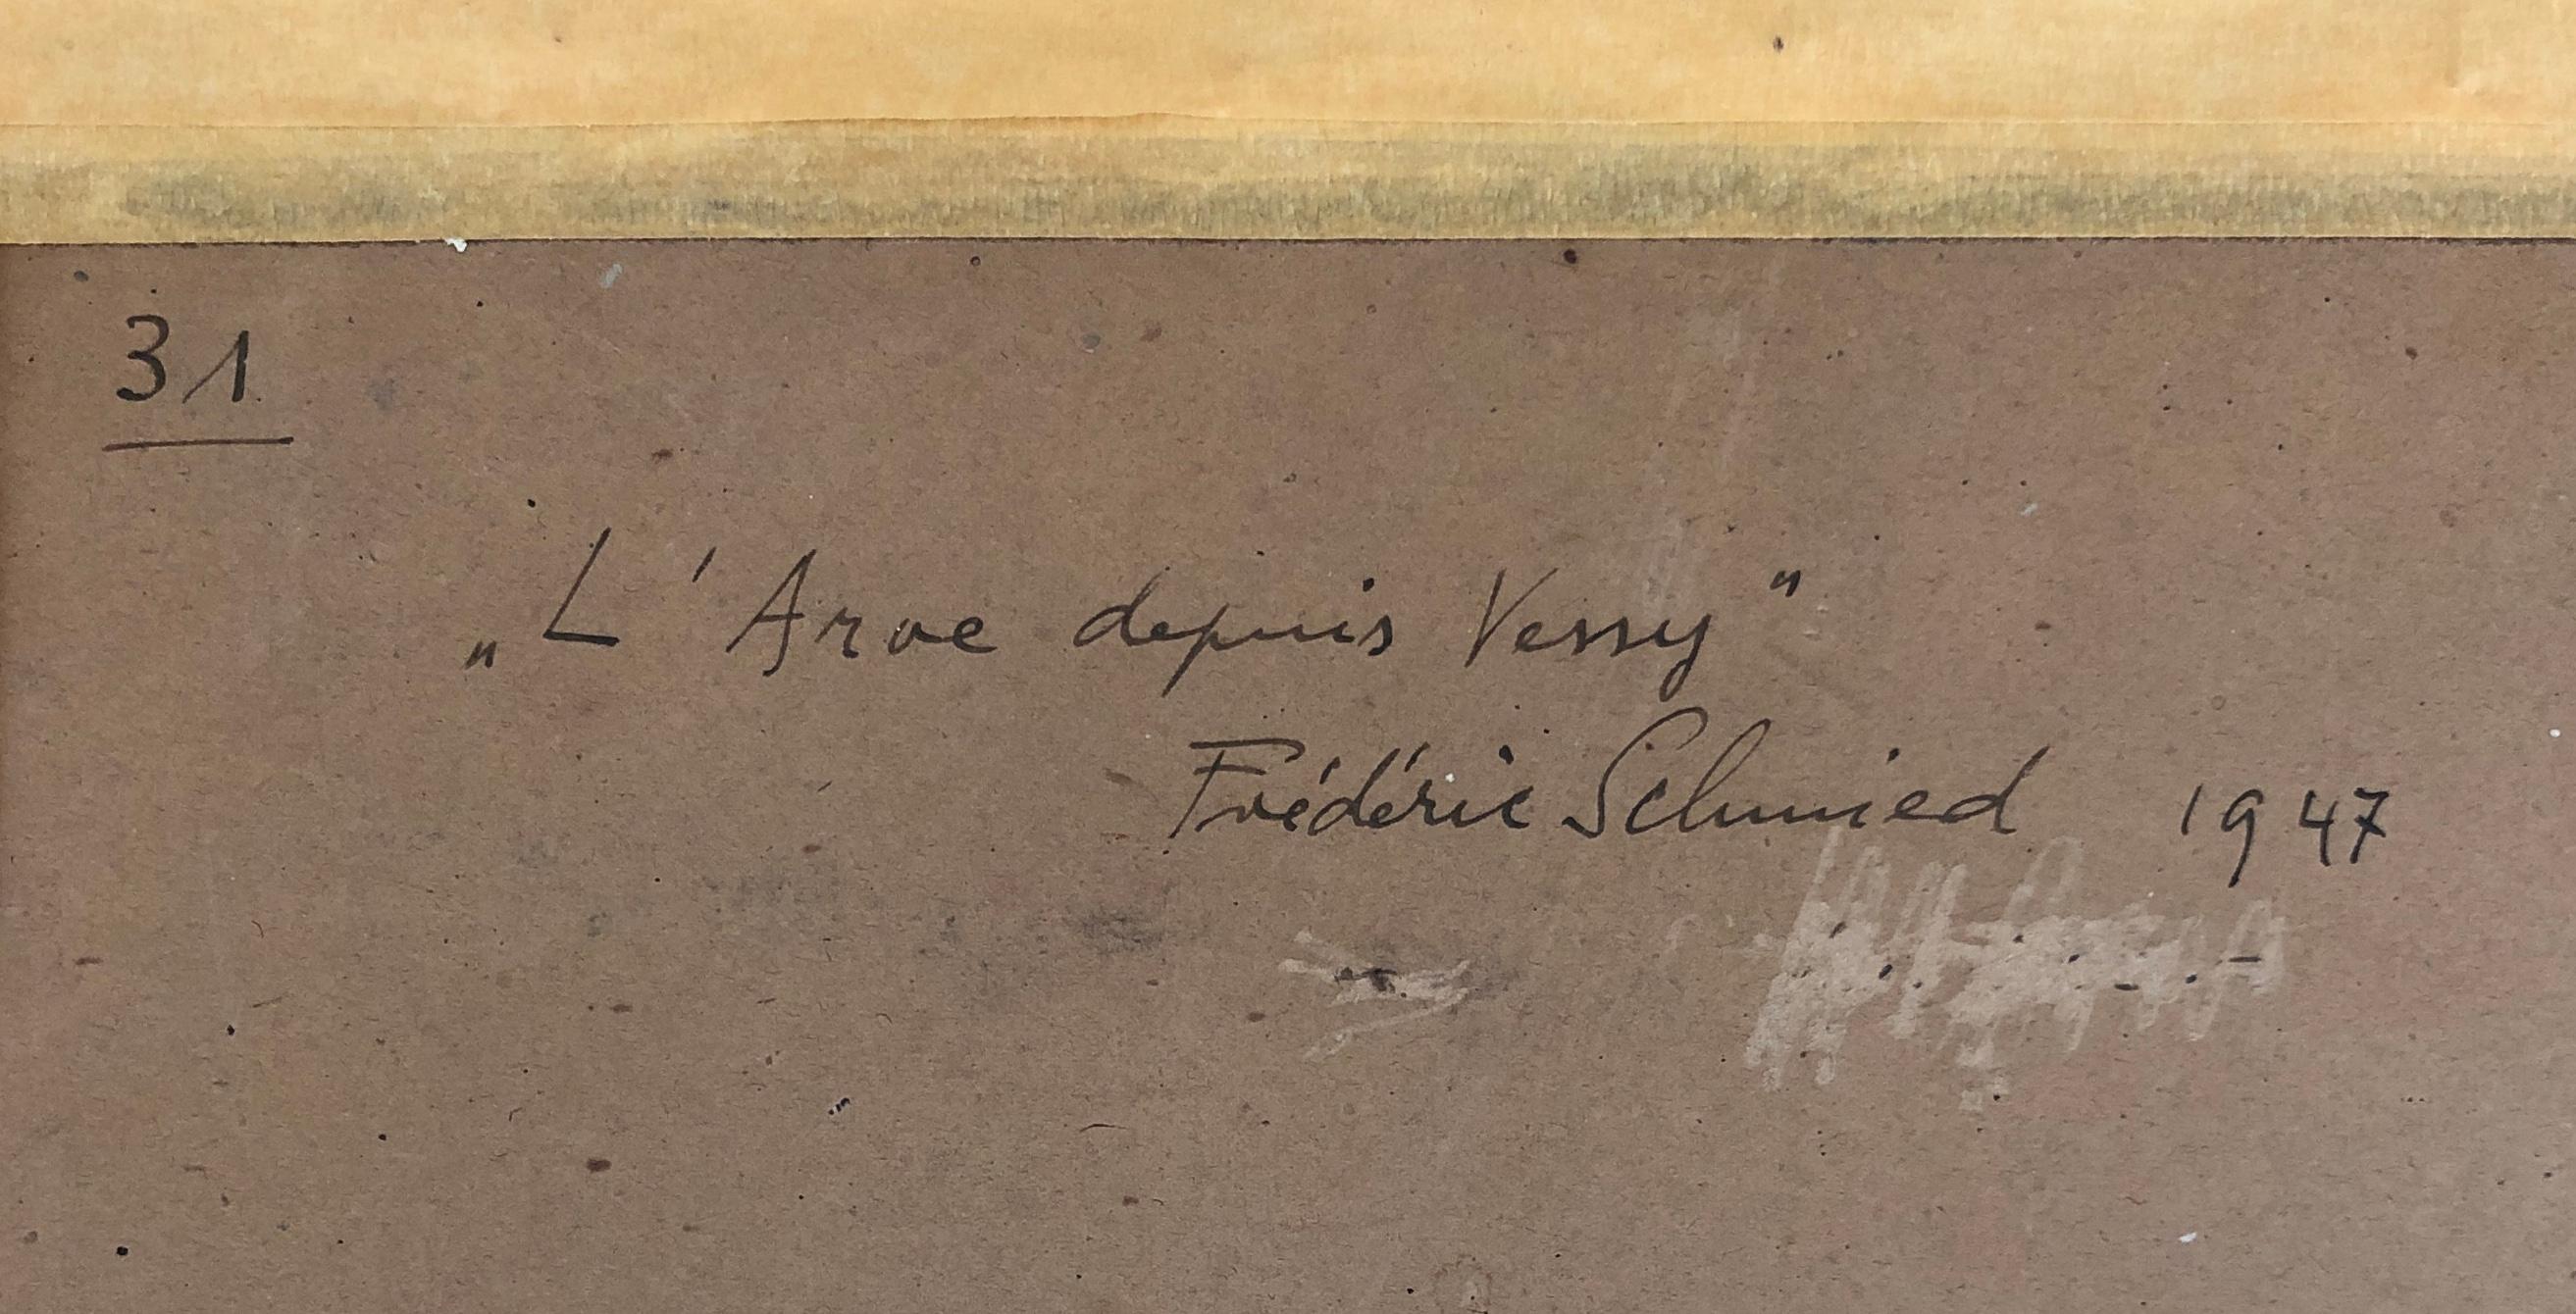 31
„L'Arve depuis Vessy"
Frédéric Schmied 1947